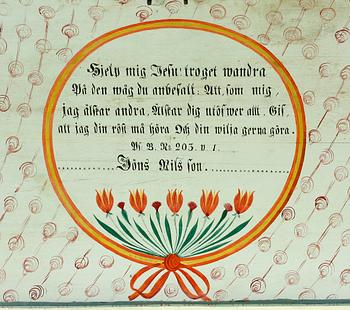 Hjelp mig Jesu: troget wandra
På den wäg du anbefalt: Att, som mig,
jag älskar andra, Älskar dig utöfwer allt. Gif,
att jag din röst må höra Och din wilja gerna göra.
Ps B. No 203. v. 1.
Jöns Nils son.